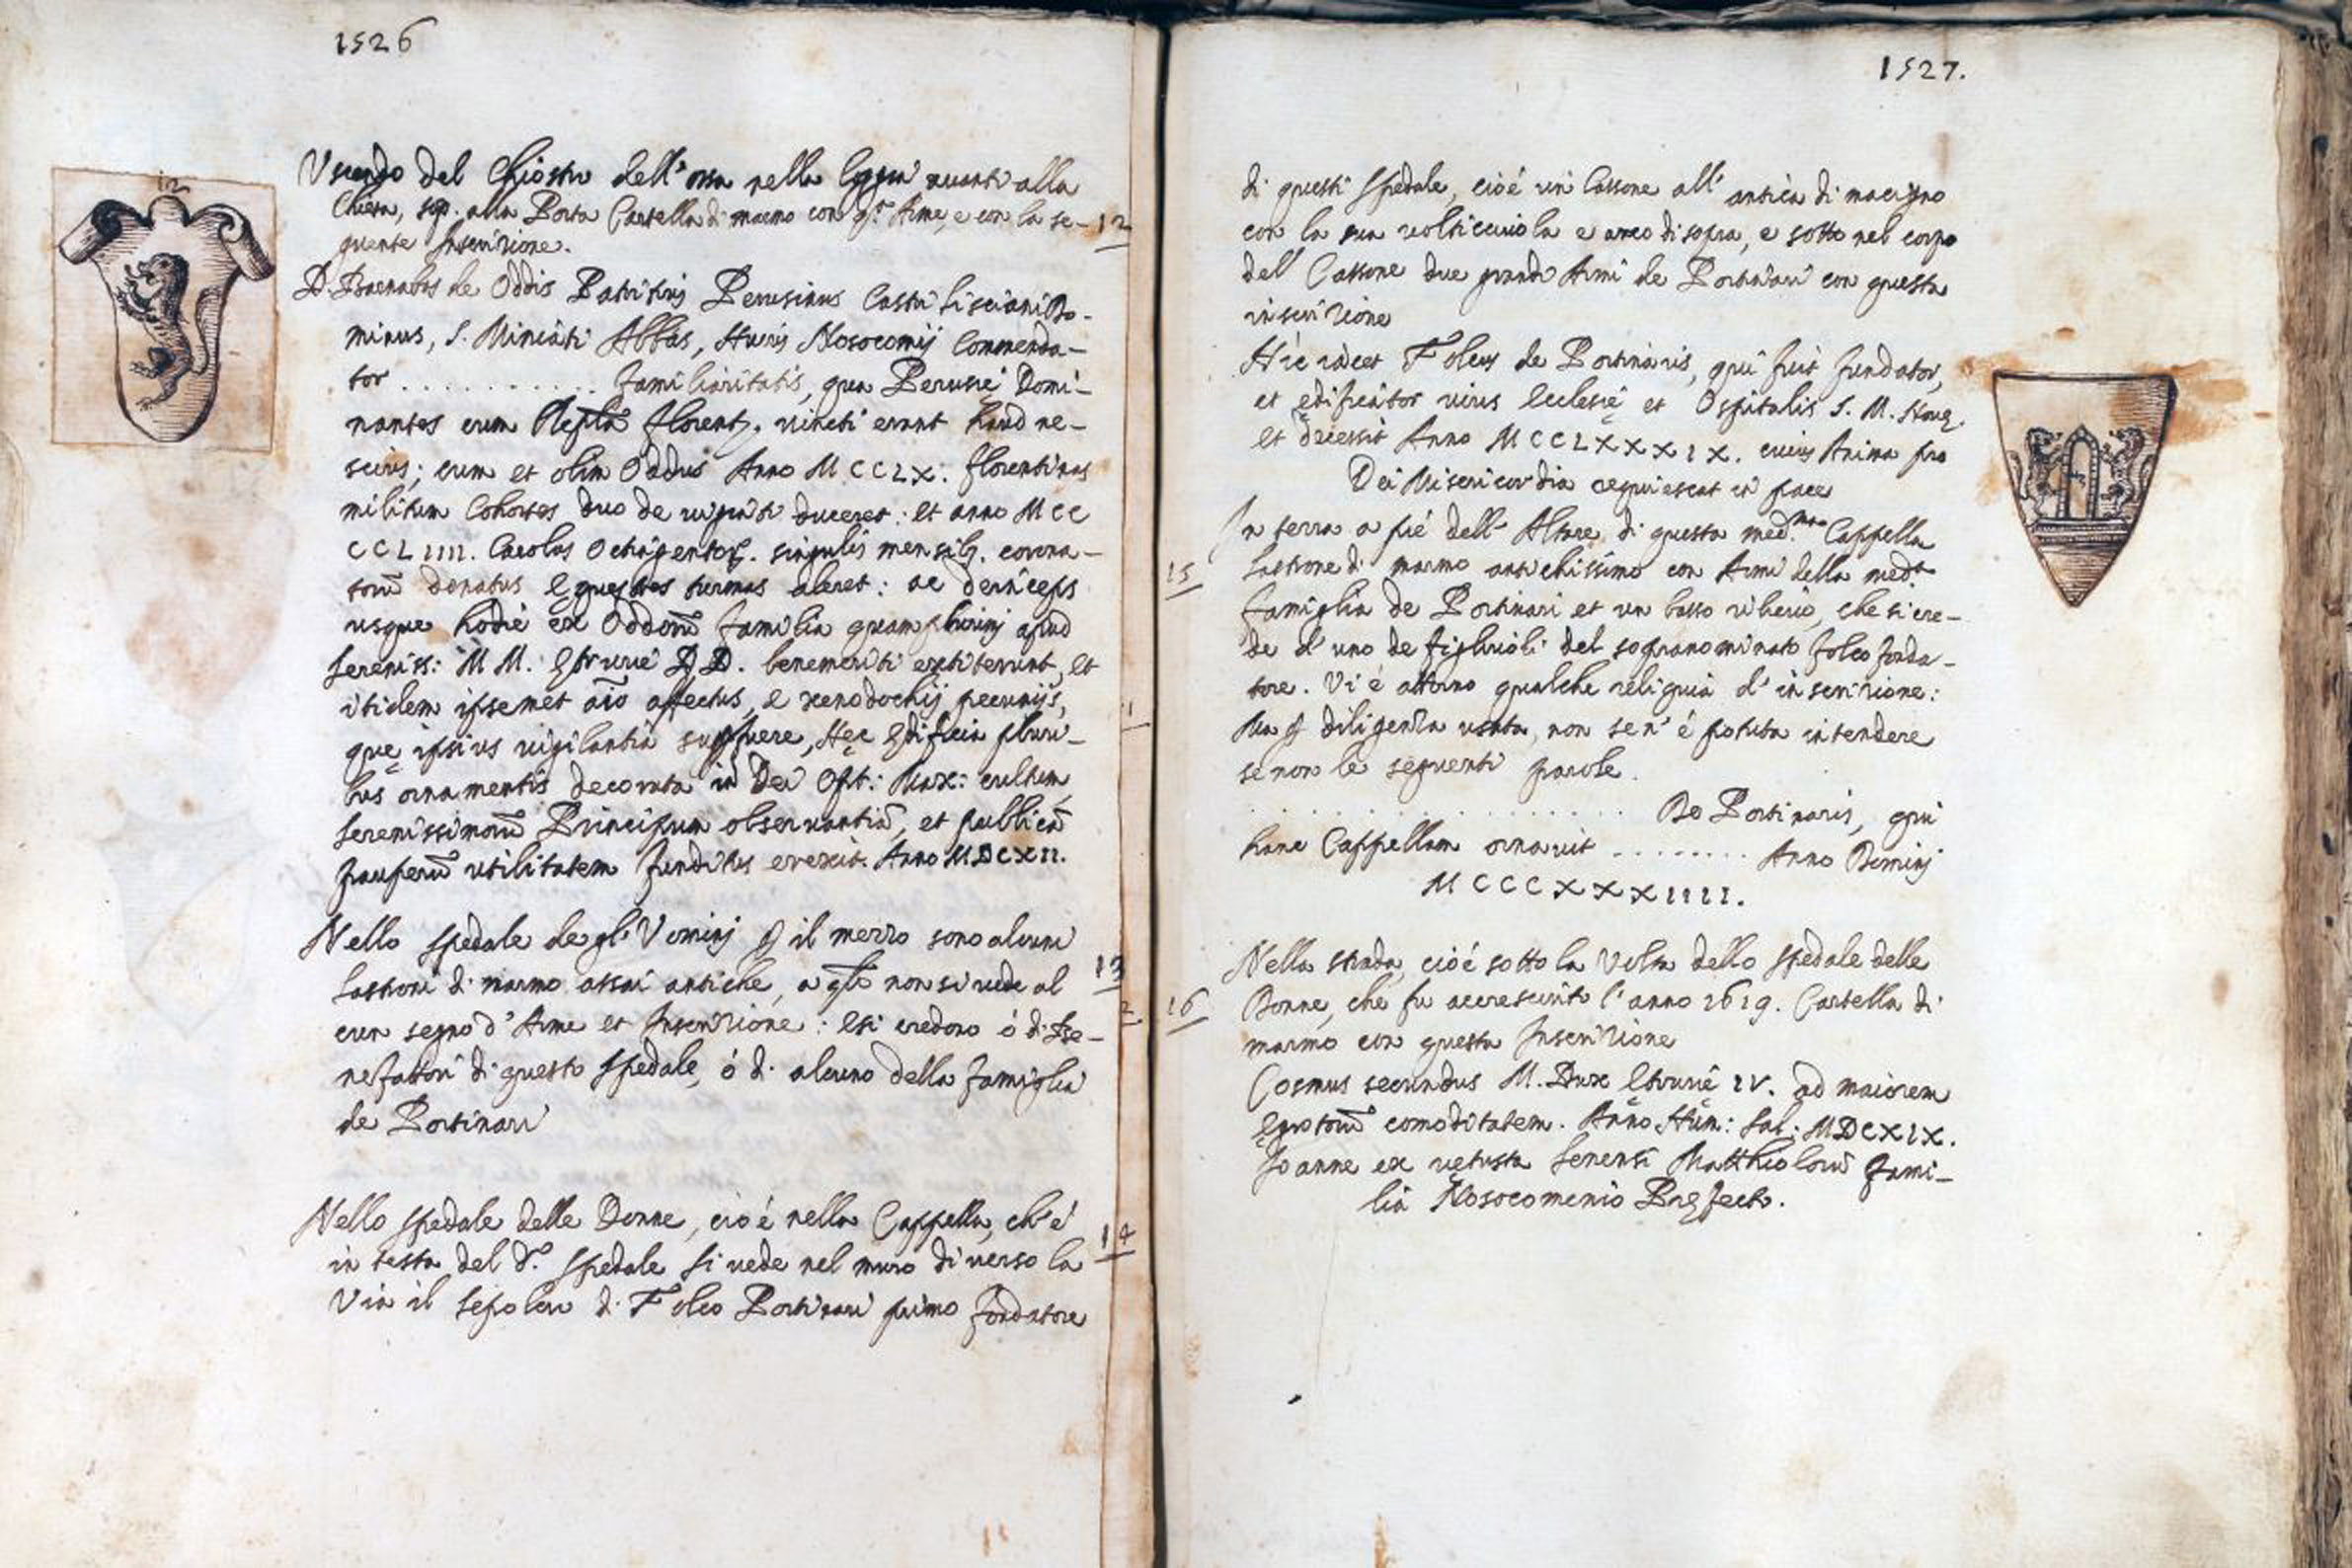 1526
12
Uscendo del Chiostro dell'ossa nella loggia avanti alla
Chiesa, sop. alla Porta Cartella di marmo con q.ta Arme, e con la se-
guente Inscrizione.
12
D. Barnabas de Oddis Patritius Perusinus Castri Lisciani Do-
minus, S. Miniati Abbas, Huius Nosocomij Commenda-
tor ........... familiaritatis, qua Perusię Domi-
nantes cum Repla Florent. vincti erant haud ne-
scius; cum et olim Oddus Anno MCCLX. florentinas
militum Cohortes duo de viginti duceret: et anno MCC
CCLIIII. Carolus Octingentor. singulis mensib. corona-
torũ donatus Equestres turmas aleret: ac deinceps
usque hodie ex Oddorũ familia quamplurimj apud
Sereniss: MM. Etrurię DD. benemeriti extiterunt, et
itidem ipsemet aĩo affectus, e xenodochij pecunijs,
quę ipsius vigilantia suppetere, Hęc Ędificia pluri-
bus ornamentis decorata in Dei Opt: Max: cultum,
Serenissimorũ Principum observantiã, et publicã
pauperũ utilitatem funditus erexit. Anno MDCXII.
Nello spedale degl'Uominj p il mezzo sono alcuni
13
Lastroni di marmo assai antiche, a qli non si vede al
cun segno d'Arme et Inscrizione: Esi credono ò di Be-
2
nefattori di questo Spedale, ò di alcuno della famiglia
de Portinari
Nello spedale delle Donne, cioè nella Cappella, ch'è
14
in testa del d.o Spedale si vede nel muro di verso la
Via il Sepolcro di Folco Portinari primo fondatore
1527.
di questi Spedale, cioè un Cassone all'antica di macigno
con la sua volticciuola e arco di sopra, e sotto nel corpo
dell Cassone due grandi Armi de Portinari con questa
inscrizione
Hic iacet Folcus de Portinaris, qui fuit fundator,
et ędificator uius Ecclesię et Ospitalis S. M. Nouę
et decessit Anno MCCLXXXIX. cuius Anima pro
Dei Misericordia requiescat in pace
In terra a piè dell'Altare di questa med.ma Cappella
15
Lastrone di marmo antichissimo con Armi della med.a
famiglia de Portinari et un basso rilievo, che si cre-
de d'uno de figliuoli del sopranominato folco fonda-
tore. Vi è attorno qualche reliquia d'inscrizione:
Ma p diligenza usata, non se n'è potuta intendere
se non le seguenti parole.
.................. De Portinaris, qui
hanc Cappellam ornavit ........ Anno Dominj
MCCCXXXIIII.
Nella strada, cioè sotto la Volta dello spedale delle
16
Donne, che fu accresciuto l'anno 1619. Cartella di
marmo con questa Inscrizione
Cosmus secundus M. Dux Etrurię IV. ad maiorem
Ęgrotorũ comoditatem. Anno Hum: Sal: MDCXIX.
Joanne ex vetusta Senensi Matthiolorũ fami-
lia Nosocomenio Pręfecto.